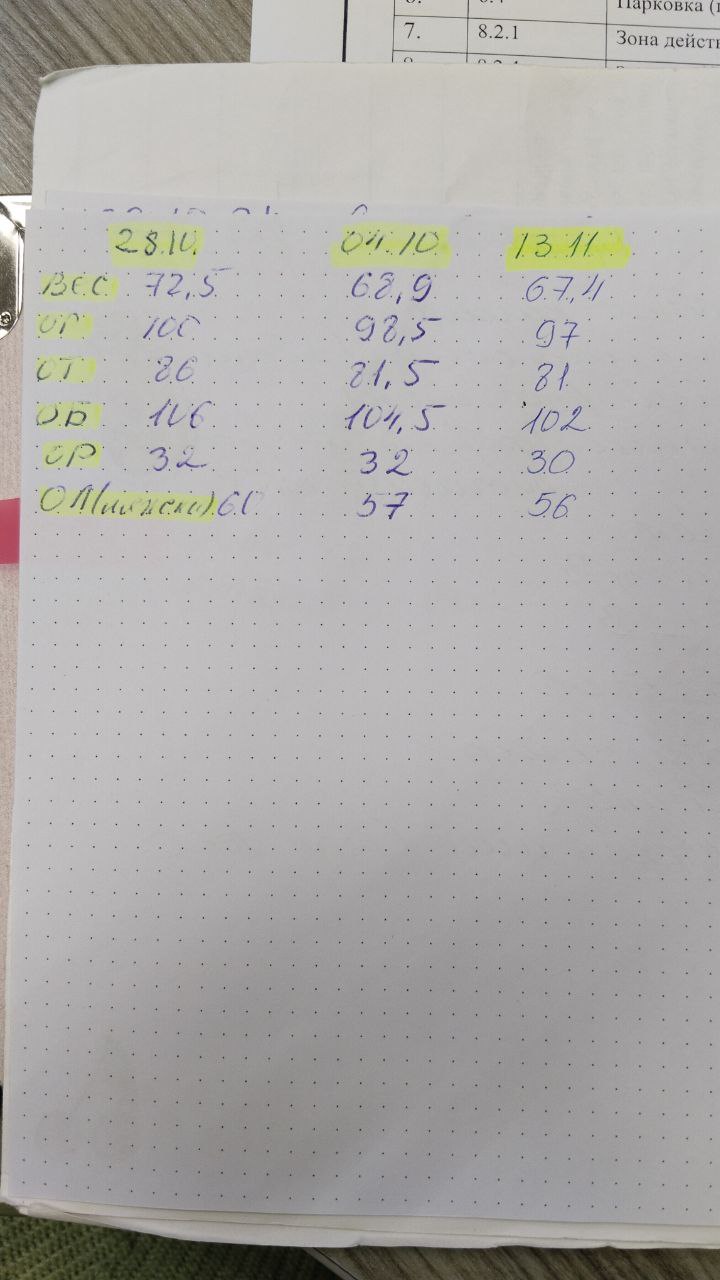 Парковка (
7. 8.2.1 Зона действ
28.10. 04.10 13.11
ВЕС 72,5 68,9 67,4
ОГ 100 98,5 97
ОТ 86 81,5 81
ОБ 106 104,5 102
ОР 32 32 30
ОЛ(ляжки) 60 57 56